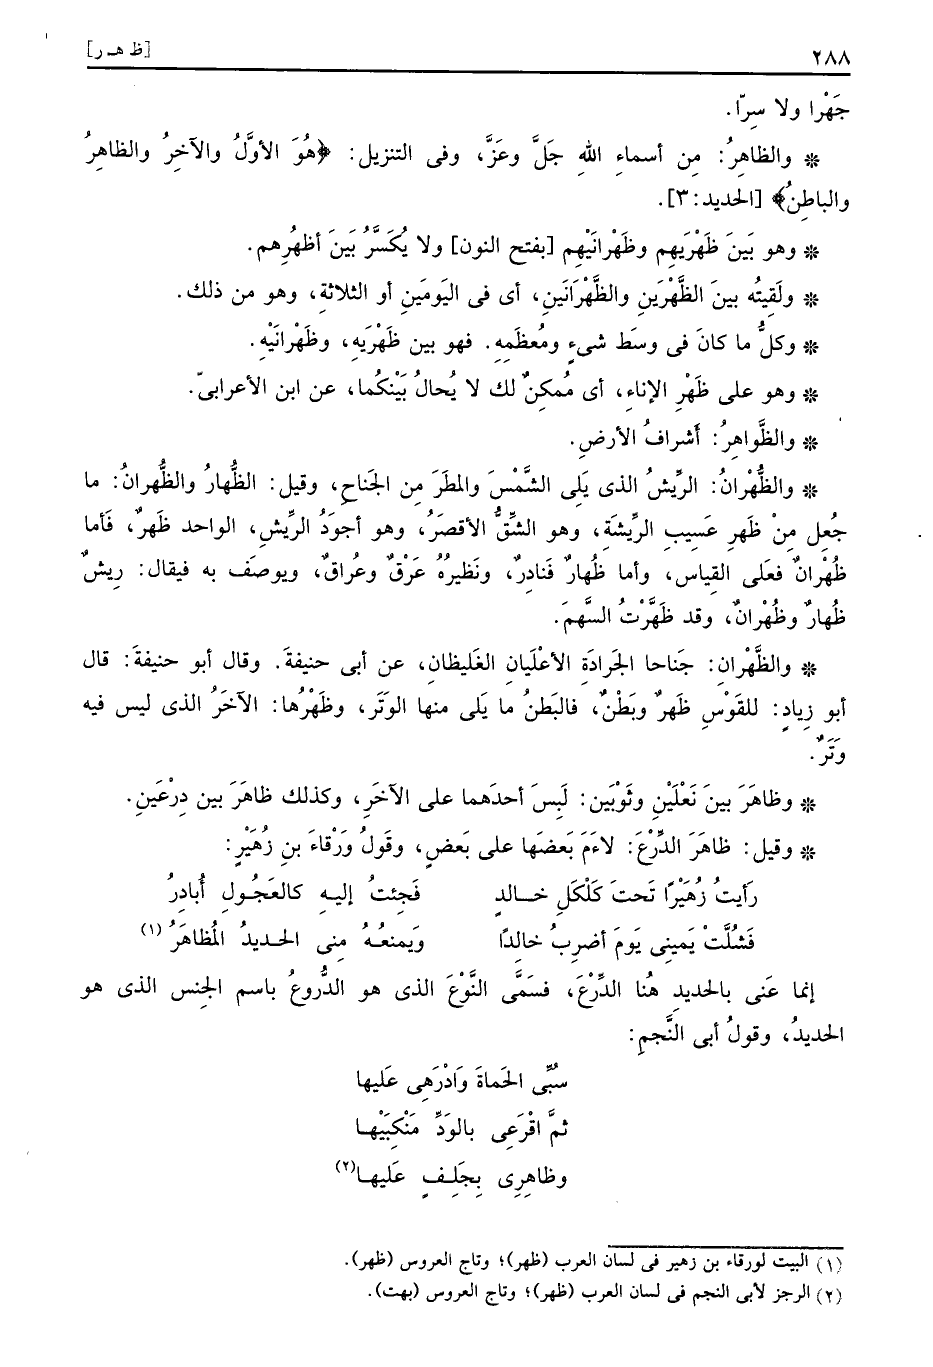 ٢٨٨ [ظ هـ ر]
جَهْرا ولا سِرّا.
* والظاهِرُ: مِن أسماءِ اللهِ جَلَّ وعَزَّ، وفى التنزيل: ﴿هُوَ الأوَّلُ والآخِرُ والظاهِرُ
والباطِنُ﴾ [الحديد: ٣].
* وهو بَينَ ظَهْرَيهِم وظَهْرانَيْهِم [بفتح النون] ولا يُكسَّرُ بَينَ أظهُرِهم.
* ولَقِيتُه بينَ الظَّهْرَينِ والظَّهْرَانَينِ، أى فى اليَومَينِ أو الثلاثةِ، وهو من ذلك.
* وكلُّ ما كانَ فى وسَط شىءٍ ومُعظَمِهِ. فهو بين ظهْرَيهِ، وظَهْرانَيْهِ.
* وهو على ظَهْرِ الإناءِ، أى مُمكِنٌ لك لا يُحالُ بَيْنكُما، عن ابن الأعرابىّ.
* والظَّواهِرُ: أَشرافُ الأرضِ.
* والظُّهْرانُ: الرِّيشُ الذى يَلى الشَّمْسَ والمطَرَ مِن الجَناحِ، وقيل: الظُّهارُ والظُّهرانُ: ما
جُعِل مِنْ ظَهرِ عَسِيبِ الرِّيشَةِ، وهو الشِّقُّ الأقصَرُ، وهو أجوَدُ الرِّيشِ، الواحد ظَهرٌ، فَأما
ظُهْرانٌ فعَلى القياس، وأما ظُهارٌ فَنادرٌ، ونَظيرُهُ عَرْقٌ وعُراقٌ، ويوصَف به فيقال: رِيشٌ
ظُهارٌ وظُهْرانٌ، وقد ظَهَّرْتُ السَّهمَ.
* والظَّهْران: جَناحا الجَرادَةِ الأعْلَيان الغَليظان، عن أبى حنيفةَ. وقال أبو حنيفةَ: قال
أبو زِيادٍ: للقَوْسِ ظَهرٌ وبَطْنٌ، فالبَطنُ ما يَلى منها الوتَر، وظَهْرُها: الآخَرُ الذى ليس فيه
وَتَرٌ.
* وظاهَرَ بَينَ نَعْلَيْنِ وثَوْبَين: لَبِسَ أحدَهما على الآخَرِ، وكذلك ظاهَرَ بين دِرْعَينِ.
* وقيل: ظاهَرَ الدِّرْعَ: لاءَمَ بَعضَها على بَعضٍ، وقَولُ وَرْقاءَ بنِ زُهَيْرٍ:
رَأيتُ زُهَيْرًا تَحتَ كَلْكَلِ خــالدٍ فَجئتُ إليـهِ كالعَجُـولِ أُبادِرُ
فَشُلَّتْ يَمينِى يَومَ أضرِبُ خالدًا وَيمنعُـهُ مِنى الحـديدُ المُظاهَرُ (١)
إنما عَنى بالحديدِ هُنا الدِّرْعَ، فسَمَّى النَّوْعَ الذى هو الدُّروعُ باسم الجِنس الذى هو
الحديدُ، وقولُ أبى النَّجمِ:
سُبِّى الحَماةَ وَادْرَهِى عَليها
ثمَّ اقْرَعِى بالوَدِّ مَنْكِبَيْهـا
وظاهِرِى بِجَلِـفٍ عَليهـا(٢)
(١) البيت لورقاء بن زهير فى لسان العرب (ظهر)؛ وتاج العروس (ظهر).
(٢) الرجز لأبى النجم فى لسان العرب (ظهر)؛ وتاج العروس (بهت).